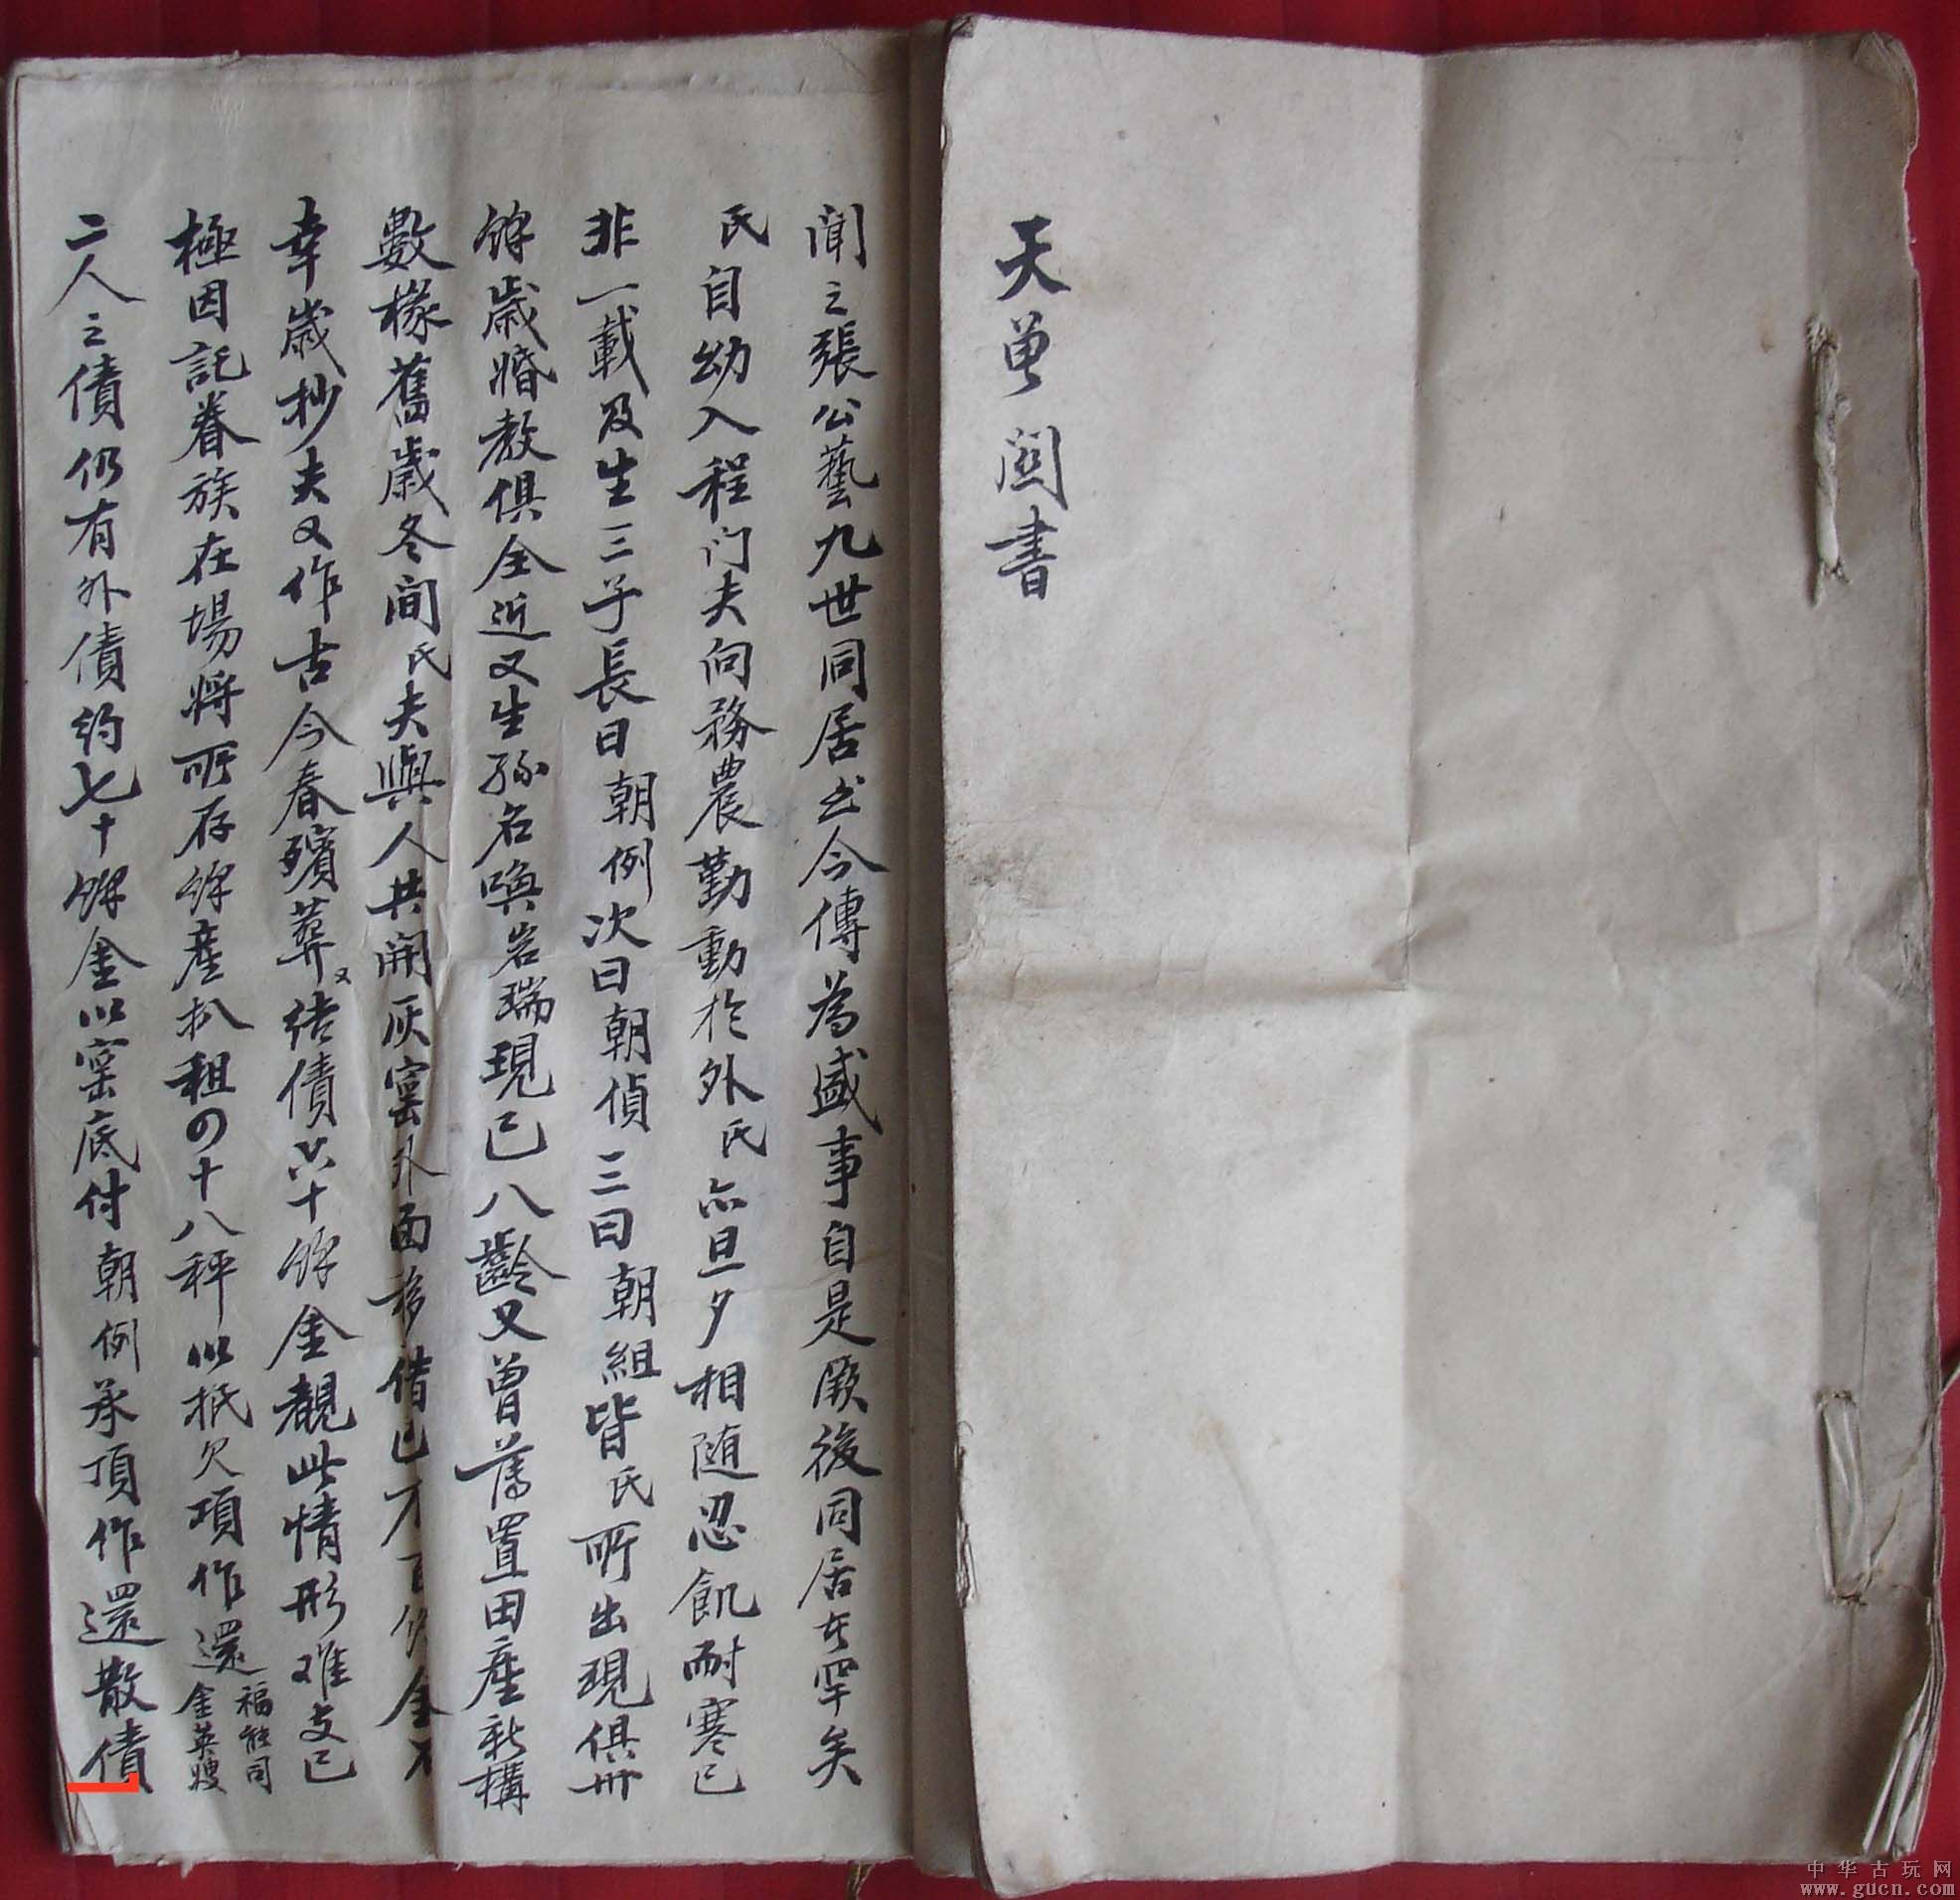 天 鬮書
聞之張公藝九世同居至今傳為盛事自是厥後同居者罕矣
氏自幼入程门夫向務農勤動於外氏亦旦夕相随忍飢耐寒已
非一載及生三子長曰朝例次曰朝偵三曰朝組皆氏所出現俱卅
餘歲婚教俱全近又生孫名喚岩瑞現已八齡又曾舊置田産新構
數椽舊歲冬间氏夫與人共開灰窰外面移借已不百餘金不
幸歲抄夫又作古今春殯葬又結债六十餘金覩此情形难支已
極因託眷族在場將所存餘産扒租四十八秤以抵欠項作還福能司金英嫂
二人之債仍有外債約七十餘金以窰底付朝例承頂作還散債
中华古玩网
www.gucn.com